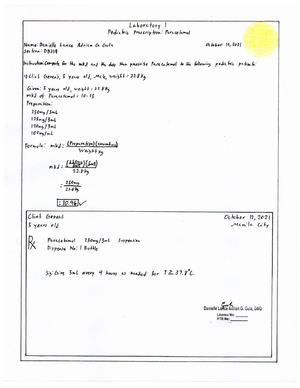 Laboratory 1
Pediatric Prescription: Paracetamol
Name: Danielle Lance Adrian G. Guio
October 19, 2021
Section: D2019
Instruction: Compute for the mkd and the dose then prescribe Paracetamol to the following pediatric patient:
1) Clint Genesis, 5 years old, Male, weight = 22.8 kg
Given: 5 years old, weight = 22.8 kg
mkd of Paracetamol = 10-15
Preparation:
250mg/5mL
125mg/5mL
120mg/5mL
100mg/mL
Formula: mkd = (Preparation)(amount)
Weight kg
mkd = (5mL)
22.8 kg
= 250mg
22.8 kg
= 10.96 ✓
Clint Genesis
October 19, 2021
5 years old
Manila City
Rx
Paracetamol 250mg/5mL Suspension
Dispense No: 1 Bottle
Sig: Give 5mL every 4 hours as needed for T ≥ 37.8°C.
Danielle Lance Adrian G. Guio, DMD
License No:
PTR No: